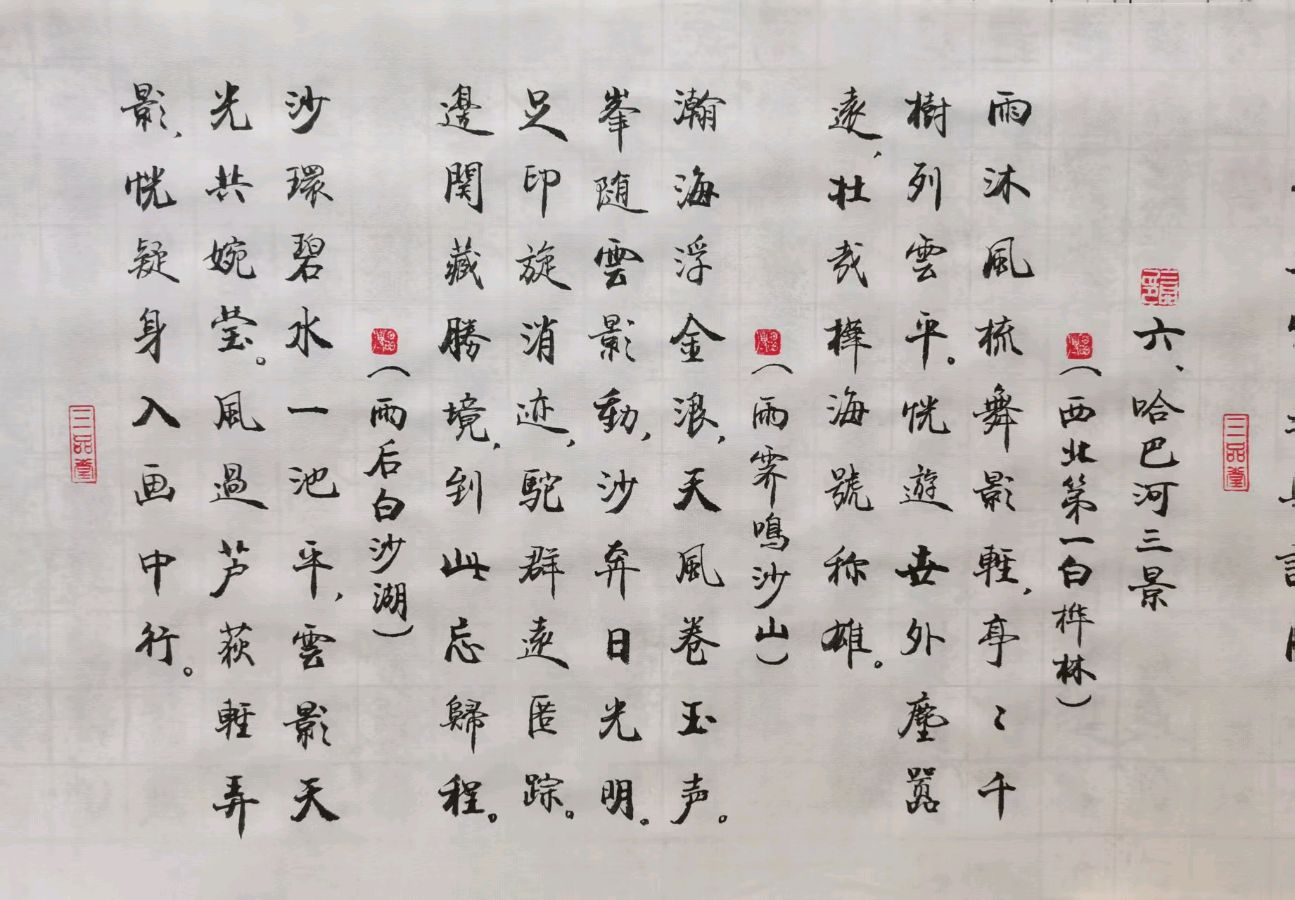 六、哈巴河三景
（西北第一白桦林）
雨沐風梳舞影輕，亭〻千
樹列雲平。恍遊世外塵囂
遠，壯哉樺海號称雄。
（雨霁鳴沙山）
瀚海浮金浪，天風卷玉声。
峯随雲影動，沙奔日光明。
足印旋消迹，駝群遠匿踪。
邊関藏勝境，到此忘歸程。
（雨后白沙湖）
沙環碧水一池平，雲影天
光共婉莹。風過芦荻輕弄
影，恍疑身入画中行。
三品堂
三品堂